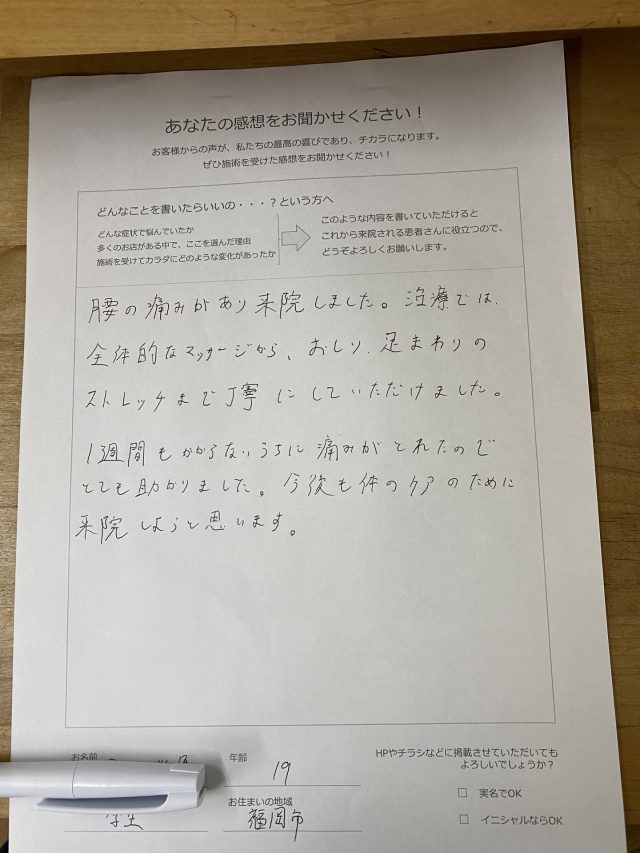 あなたの感想をお聞かせください！
お客様からの声が、私たちの最高の喜びであり、チカラになります。
ぜひ施術を受けた感想をお聞かせください！
どんなことを書いたらいいの・・・？という方へ
どんな症状で悩んでいたか
多くのお店がある中で、ここを選んだ理由
施術を受けてカラダにどのような変化があったか
このような内容を書いていただけると
これから来院される患者さんに役立つので、
どうぞよろしくお願いします。
腰の痛みがあり来院しました。治療では、
全体的なマッサージから、おしり、足まわりの
ストレッチまで丁寧にしていただけました。
1週間もかからないうちに痛みがとれたので
とても助かりました。今後も体のケアのために
来院しようと思います。
お名前
年齢 19
学生
お住まいの地域 福岡市
HPやチラシなどに掲載させていただいても
よろしいでしょうか？
□ 実名でOK
□ イニシャルならOK